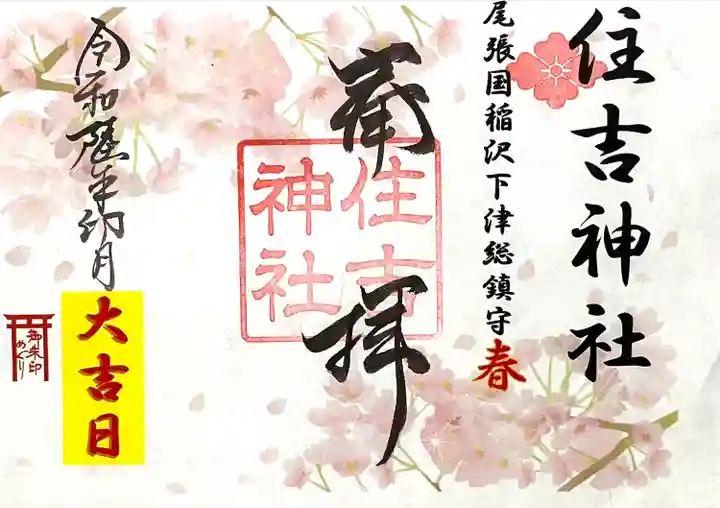 住吉神社
尾張国稲沢下津総鎮守春
奉拝
住吉
神社
令和 年卯月
大吉日
御朱印
めぐり